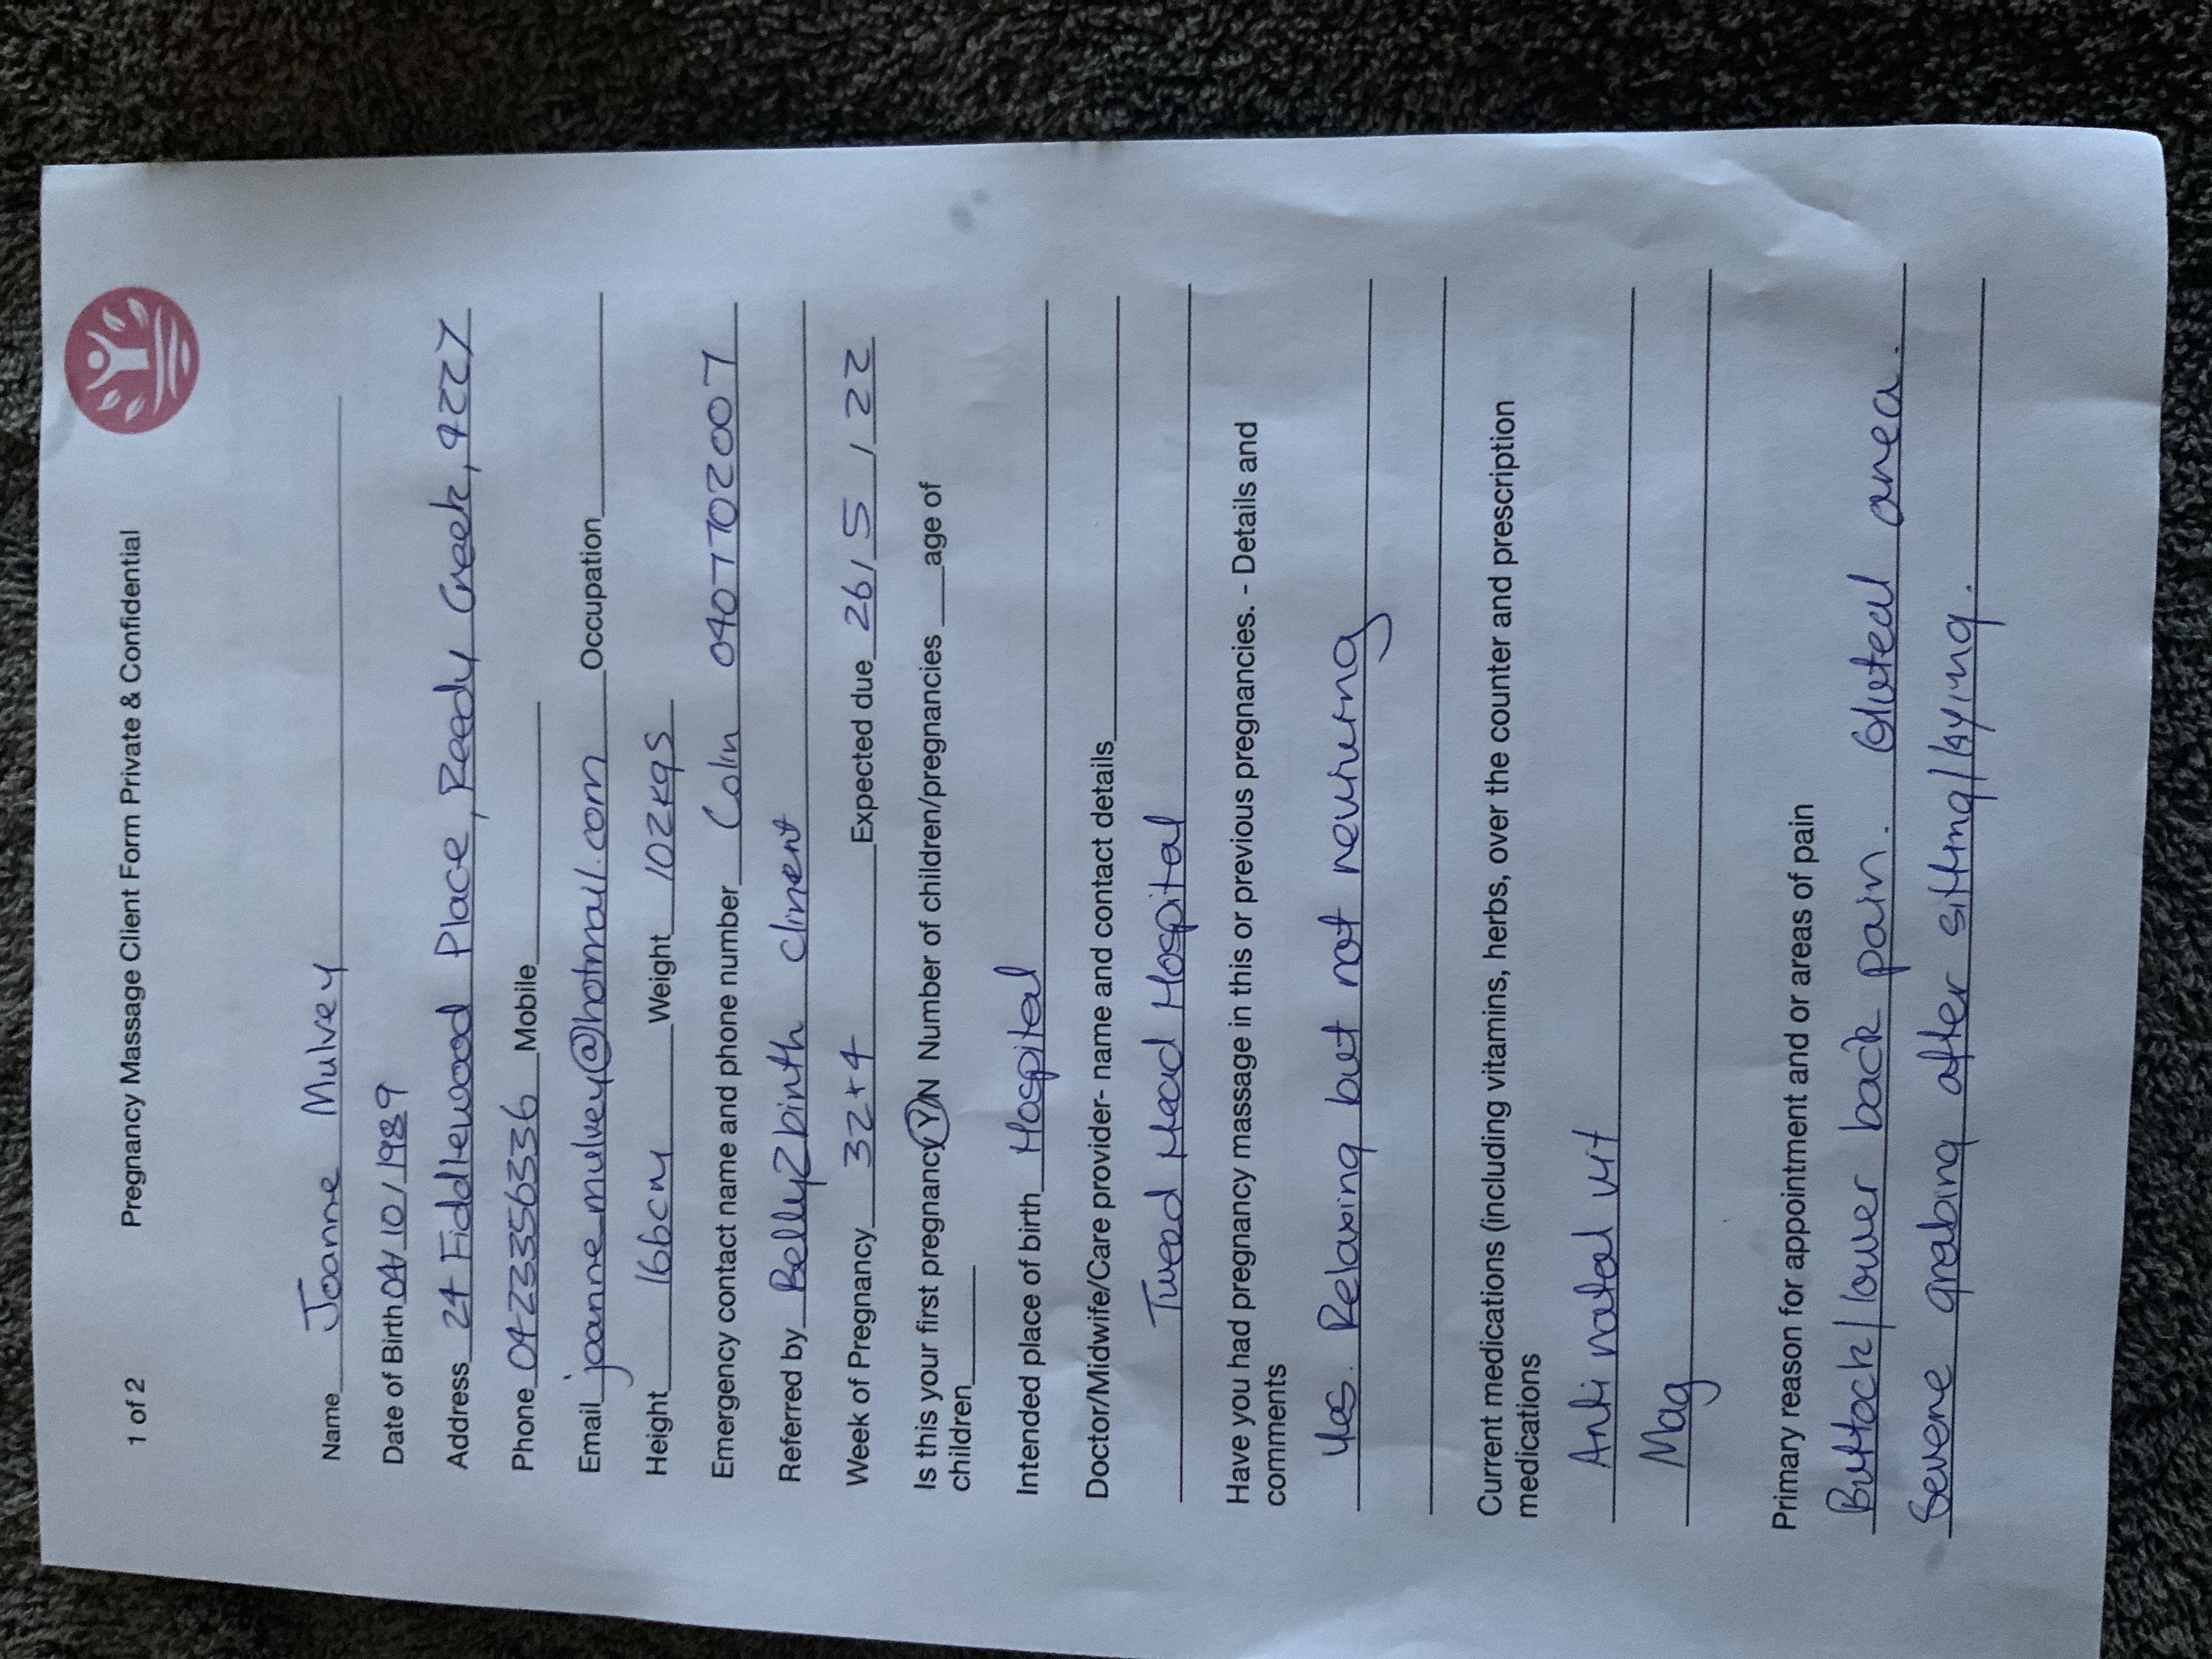 1 of 2 Pregnancy Massage Client Form Private & Confidential
Name Joanne Mulvey
Date of Birth 04/10/1989
Address 24 Fiddlewood Place, Reedy Creek, 4227
Phone 0423356336 Mobile
Email joanne_mulvey@hotmail.com Occupation
Height 166cm Weight 102kgs
Emergency contact name and phone number Colin 0407702007
Referred by Belly2birth clinent
Week of Pregnancy 32+4 Expected due 26/5/22
Is this your first pregnancy Y/N Number of children/pregnancies ___age of
children
Intended place of birth Hospital
Doctor/Midwife/Care provider- name and contact details
Tweed Head Hospital
Have you had pregnancy massage in this or previous pregnancies. - Details and
comments
Yes. Relaxing but not
Current medications (including vitamins, herbs, over the counter and prescription
medications
Anti natal vit
Mag
Primary reason for appointment and or areas of pain
Buttock/lower back pain. Gluteal area.
Severe grabing after sitting/laying.